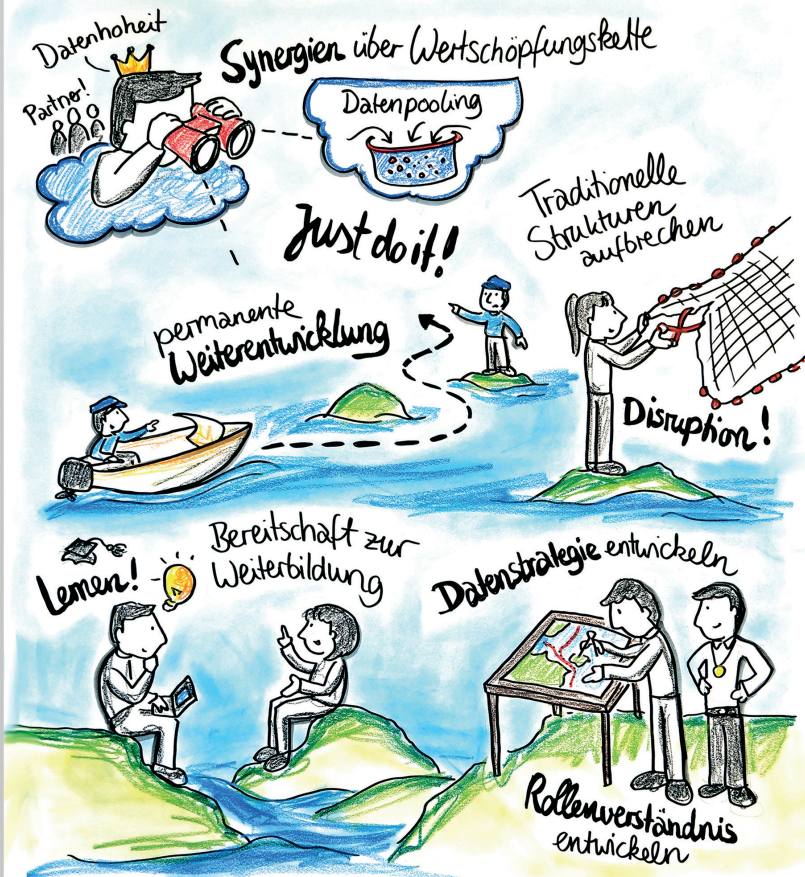 Datenhoheit
Partner!
Synergien über Wertschöpfungskette
Datenpooling
Just do it!
Traditionelle
Strukturen
aufbrechen
permanente
Weiterentwicklung
Disruption!
Lernen!
Bereitschaft zur
Weiterbildung
Datenstrategie entwickeln
Rollenverständnis
entwickeln